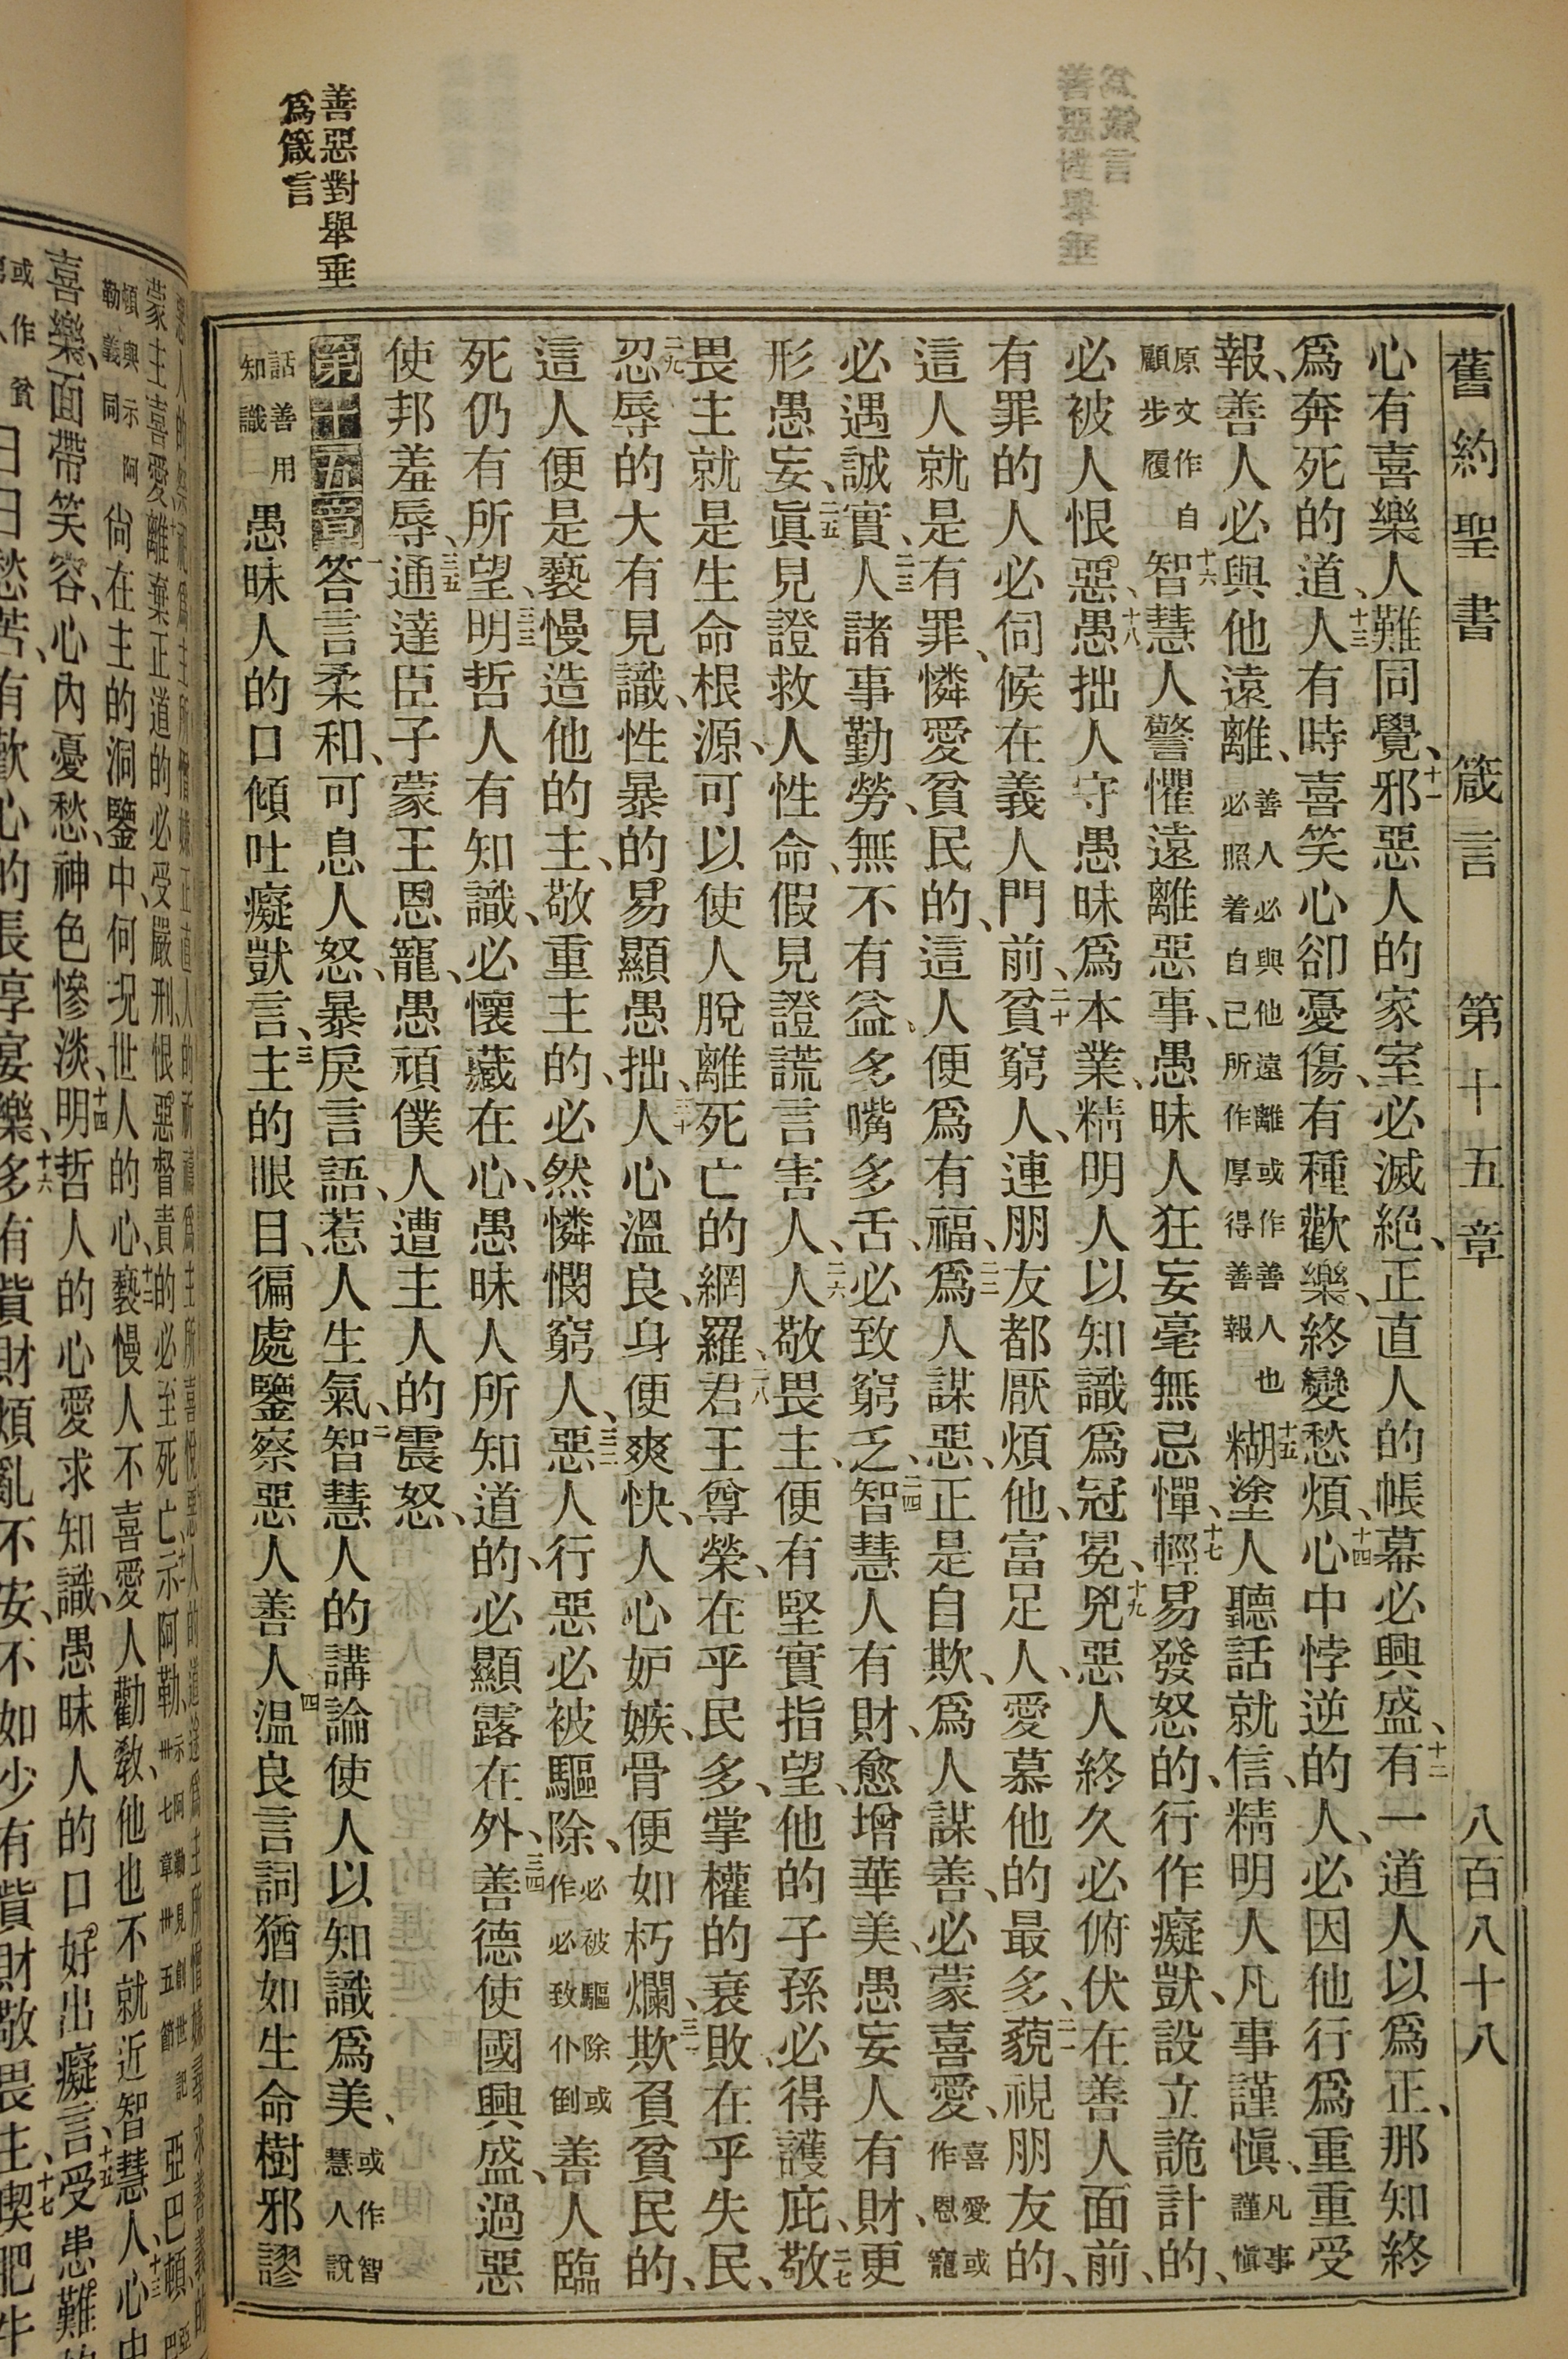 舊約聖書 箴言 第十五章 八百八十八
心有喜樂人難同覺、十一邪惡人的家室必滅絕、正直人的帳幕必興盛、十二有一道人以爲正、那知終
爲奔死的道、十三人有時喜笑心卻憂傷、有種歡樂、終變愁煩、十四心中悖逆的人、必因他行爲重重受
報、善人必與他遠離、善人必與他遠離或作善人也必照着自己所作厚得善報十五糊塗人聽話就信、精明人凡事謹愼、凡事謹愼
原文作自顧步履十六智慧人警懼遠離惡事、愚昧人狂妄毫無忌憚、十七輕易發怒的、行作癡獃、設立詭計的、
必被人恨惡、十八愚拙人守愚昧爲本業、精明人以知識爲冠冕、十九兇惡人終久必俯伏在善人面前、
有罪的人必伺候在義人門前、二十貧窮人、連朋友都厭煩他、富足人、愛慕他的最多、二一藐視朋友的、
這人就是有罪、憐愛貧民的、這人便爲有福、二二爲人謀惡、正是自欺、爲人謀善、必蒙喜愛、喜愛或作恩寵
必遇誠實、二三人諸事勤勞、無不有益、多嘴多舌、必致窮乏、二四智慧人有財、愈增華美、愚妄人有財、更
形愚妄、二五眞見證救人性命、假見證謊言害人、二六人敬畏主、便有堅實指望、他的子孫必得護庇、二七敬
畏主就是生命根源、可以使人脫離死亡的網羅、二八君王尊榮、在乎民多、掌權的衰敗、在乎失民、
二九忍辱的大有見識、性暴的易顯愚拙、三十人心溫良、身便爽快、人心妒嫉、骨便如朽爛、三一欺負貧民的、
這人便是褻慢造他的主、敬重主的、必然憐憫窮人、三二惡人行惡必被驅除、必被驅除或作必致仆倒善人臨
死仍有所望、三三明哲人有知識、必懷藏在心、愚昧人所知道的、必顯露在外、三四善德使國興盛、過惡
使邦羞辱、三五通達臣子蒙王恩寵、愚頑僕人遭主人的震怒、
善惡對舉垂
爲箴言
第十五章一答言柔和、可息人怒、暴戾言語、惹人生氣、二智慧人的講論使人以知識爲美、或作智慧人說
話善用知識愚昧人的口傾吐癡獃言、三主的眼目、徧處鑒察惡人善人四温良言詞猶如生命樹邪謬
蒙主喜愛、離棄正道的必受嚴刑、恨惡督責的必至死亡、
尙在主的洞鑒中、何況世人的心、十二褻慢人不喜愛人勸敎、他也不就近智慧人、十三心中
喜樂、面帶笑容、心內憂愁、神色慘淡、十四明哲人的心愛求知識、愚昧人的口好出癡言、十五受患難
日日愁苦、有歡心的長享宴樂、十六多有貲財煩亂不安、不如少有貲財敬畏主、十七喫肥牛